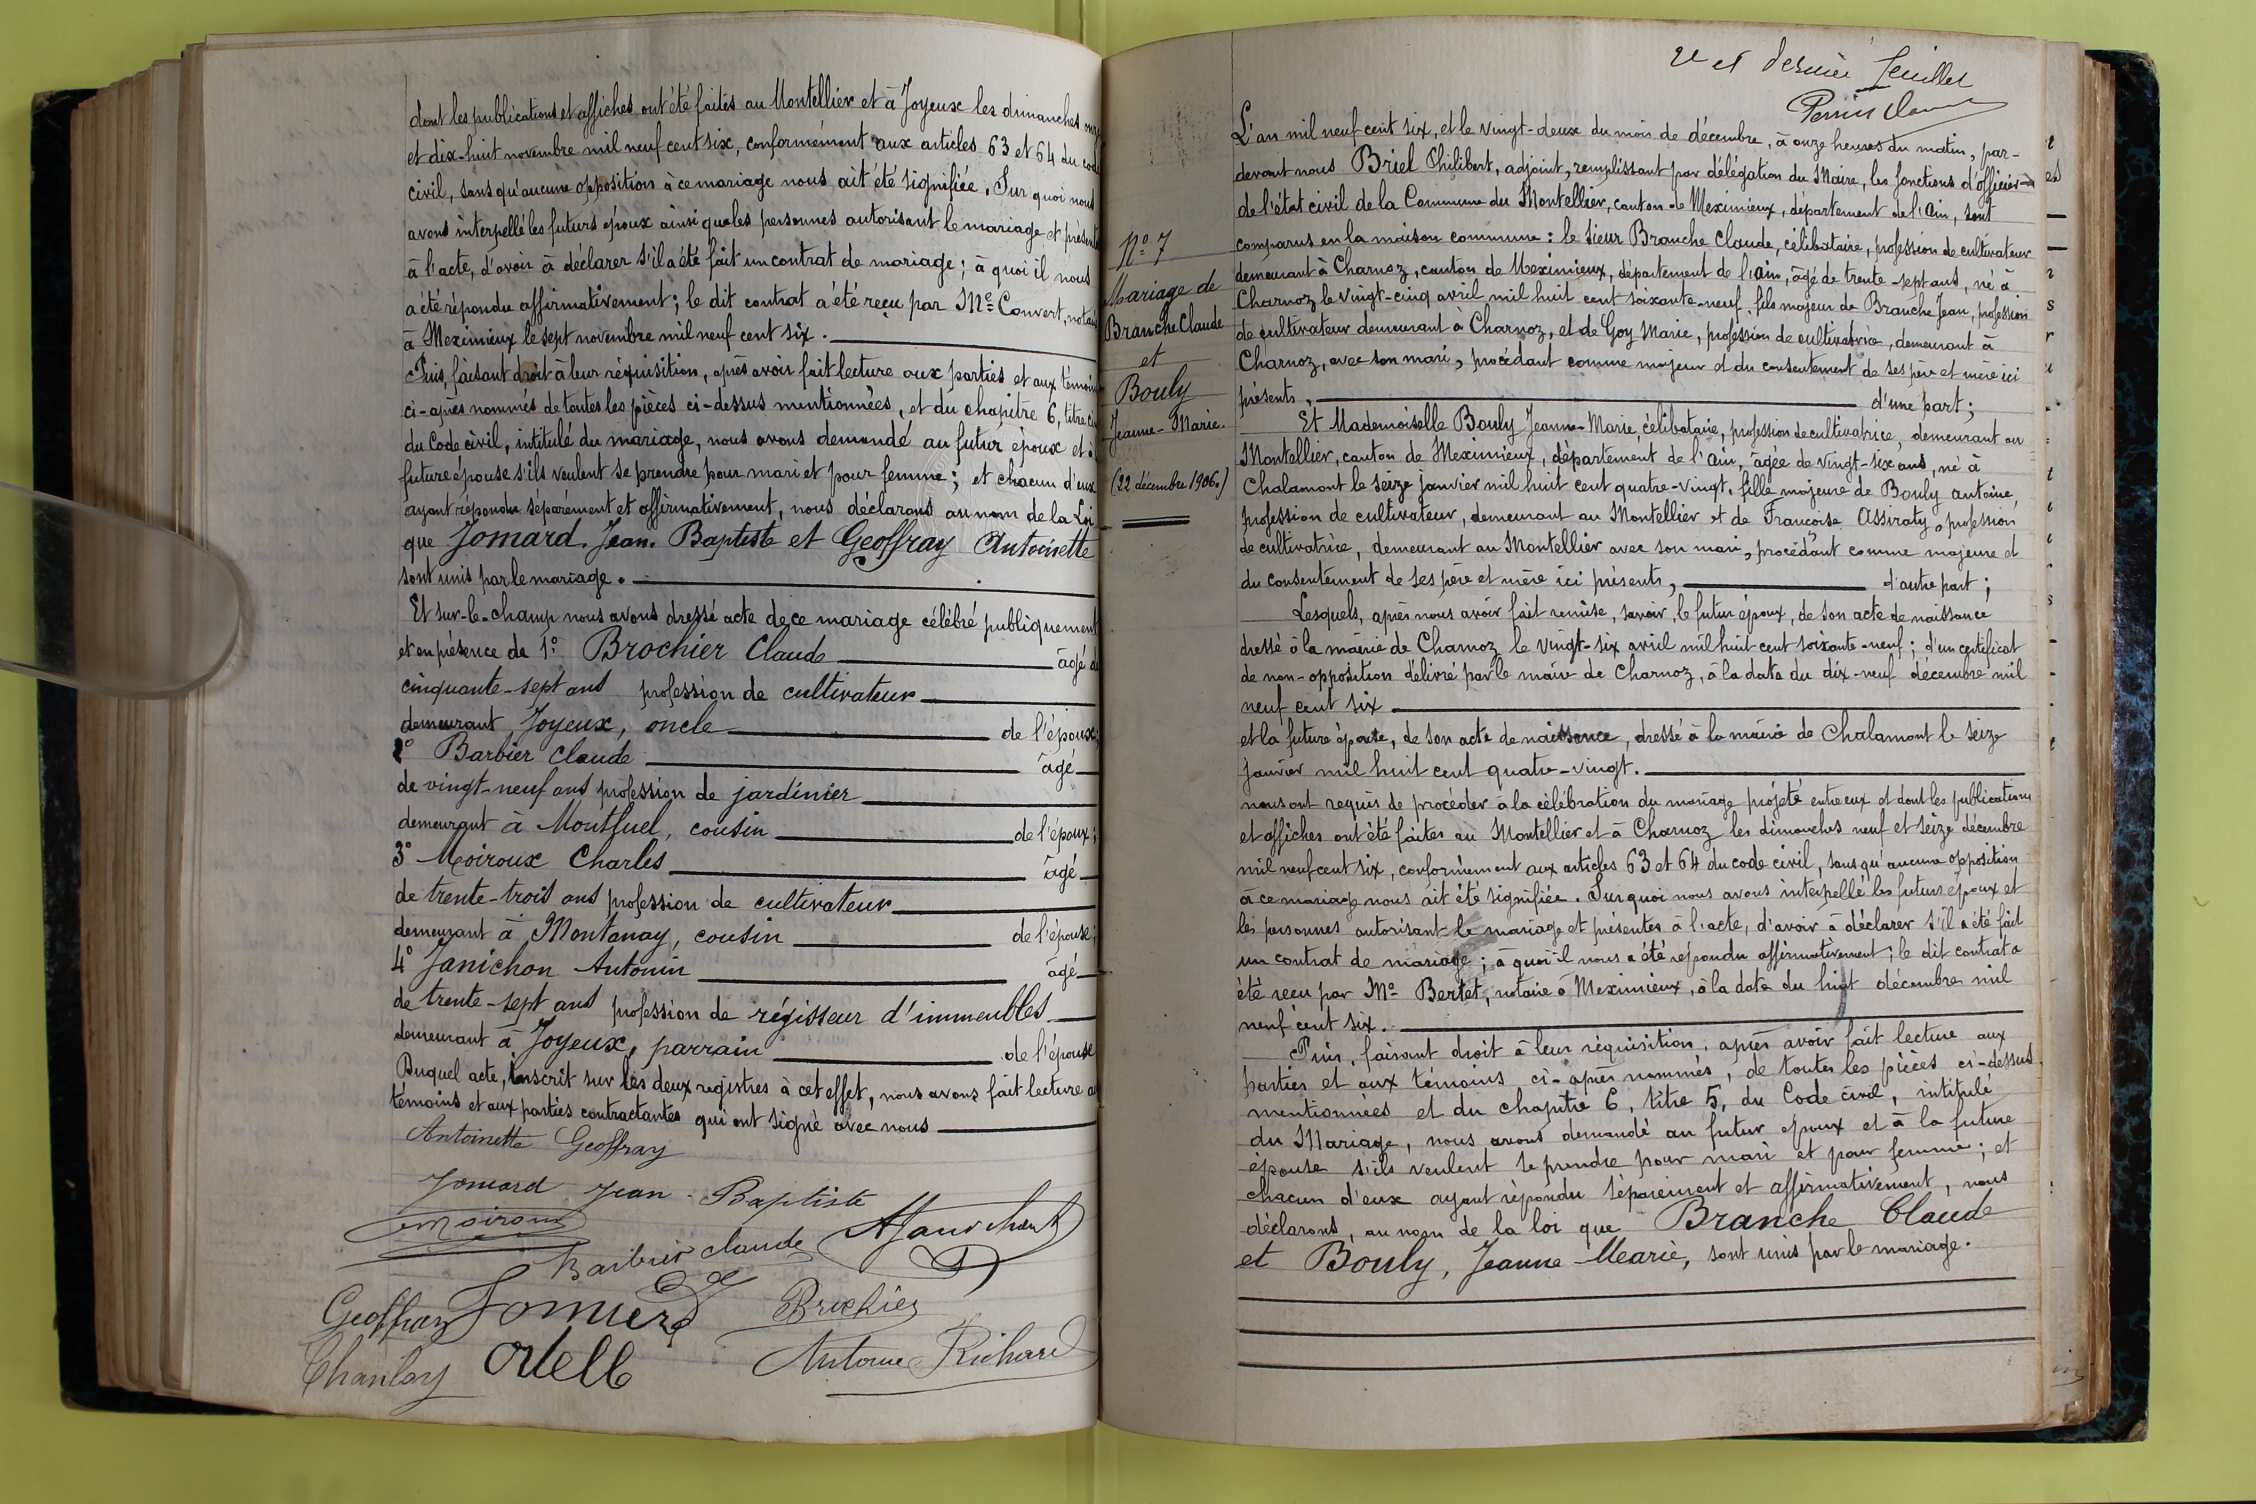 dont les publications et affiches ont été faites au Montellier et à Joyeux les dimanches onze
et dix-huit novembre mil neuf cent six, conformément aux articles 63 et 64 du code
civil, sans qu'aucune opposition à ce mariage nous ait été signifiée. Sur quoi nous
avons interpellé les futurs époux ainsi que les personnes autorisant le mariage et présentes
à l'acte, d'avoir à déclarer s'il a été fait un contrat de mariage ; à quoi il nous
a été répondu affirmativement ; le dit contrat a été reçu par Me Convert, notaire
à Meximieux le sept novembre mil neuf cent six.
Puis, faisant droit à leur réquisition, après avoir fait lecture aux parties et aux témoins
ci-après nommés de toutes les pièces ci-dessus mentionnées, et du chapitre 6, titre cinq
du Code civil, intitulé du mariage, nous avons demandé au futur époux et à
future épouse s'ils veulent se prendre pour mari et pour femme ; et chacun d'eux
ayant répondu séparément et affirmativement, nous déclarons au nom de la Loi
que Jomard Jean Baptiste et Geoffray Antoinette
sont unis par le mariage.
Et sur-le-champ nous avons dressé acte de ce mariage célébré publiquement
et en présence de 1° Brochier Claude âgé de
cinquante-sept ans profession de cultivateur
demeurant Joyeux, oncle de l'époux ;
2° Barbier Claude âgé
de vingt-neuf ans profession de jardinier
demeurant à Montluel, cousin de l'époux ;
3° Moiroux Charles âgé
de trente-trois ans profession de cultivateur
demeurant à Montanay, cousin de l'épouse ;
4° Janichon Antonin âgé
de trente-sept ans profession de régisseur d'immeubles
demeurant à Joyeux, parrain de l'épouse
Duquel acte, inscrit sur les deux registres à cet effet, nous avons fait lecture aux
témoins et aux parties contractantes qui ont signé avec nous
Antoinette Geoffray
Jomard Jean-Baptiste
Moiroux
Barbier Claude
Geoffray
Brochier
Antoine Richard
2e et dernier feuillet
N° 7
Mariage de
Branche Claude
et
Bouly
Jeanne-Marie.
(22 décembre 1906.)
L'an mil neuf cent six, et le vingt-deux du mois de décembre, à onze heures du matin, par-
devant nous Briel Philibert, adjoint, remplissant par délégation du Maire, les fonctions d'officier
de l'état civil de la Commune du Montellier, canton de Meximieux, département de l'Ain, sont
comparus en la maison commune : le sieur Branche Claude, célibataire, profession de cultivateur
demeurant à Charnoz, canton de Meximieux, département de l'Ain, âgé de trente-sept ans, né à
Charnoz le vingt-cinq avril mil huit cent soixante-neuf, fils majeur de Branche Jean, profession
de cultivateur demeurant à Charnoz, et de Goy Marie, profession de cultivatrice, demeurant à
Charnoz, avec son mari, procédant comme majeur et du consentement de ses père et mère ici
présents, d'une part ;
Et Mademoiselle Bouly Jeanne-Marie, célibataire, profession de cultivatrice, demeurant au
Montellier, canton de Meximieux, département de l'Ain, âgée de vingt-six ans, né à
Chalamont le seize janvier mil huit cent quatre-vingt, fille majeure de Bouly Antoine,
profession de cultivateur, demeurant au Montellier et de Françoise Assiraty, profession
de cultivatrice, demeurant au Montellier avec son mari, procédant comme majeure et
du consentement de ses père et mère ici présents, d'autre part ;
Lesquels, après nous avoir fait remise, savoir, le futur époux, de son acte de naissance
dressé à la mairie de Charnoz le vingt-six avril mil huit cent soixante-neuf ; d'un certificat
de non-opposition délivré par le maire de Charnoz, à la date du dix-neuf décembre mil
neuf cent six
et la future épouse, de son acte de naissance, dressé à la mairie de Chalamont le seize
janvier mil huit cent quatre-vingt.
nous ont requis de procéder à la célébration du mariage projeté entre eux et dont les publications
et affiches ont été faites au Montellier et à Charnoz les dimanches neuf et seize décembre
mil neuf cent six, conformément aux articles 63 et 64 du code civil, sans qu'aucune opposition
à ce mariage nous ait été signifiée. Sur quoi nous avons interpellé les futurs époux et
les personnes autorisant le mariage et présentes à l'acte, d'avoir à déclarer s'il a été fait
un contrat de mariage ; à quoi il nous a été répondu affirmativement ; le dit contrat a
été reçu par Me Bertet, notaire à Meximieux, à la date du huit décembre mil
neuf cent six.
Puis, faisant droit à leur réquisition, après avoir fait lecture aux
parties et aux témoins ci-après nommés, de toutes les pièces ci-dessus
mentionnées et du chapitre 6, titre 5, du Code civil, intitulé
du Mariage, nous avons demandé au futur époux et à la future
épouse s'ils veulent se prendre pour mari et pour femme ; et
chacun d'eux ayant répondu séparément et affirmativement, nous
déclarons, au nom de la loi que Branche Claude
et Bouly, Jeanne-Marie, sont unis par le mariage.